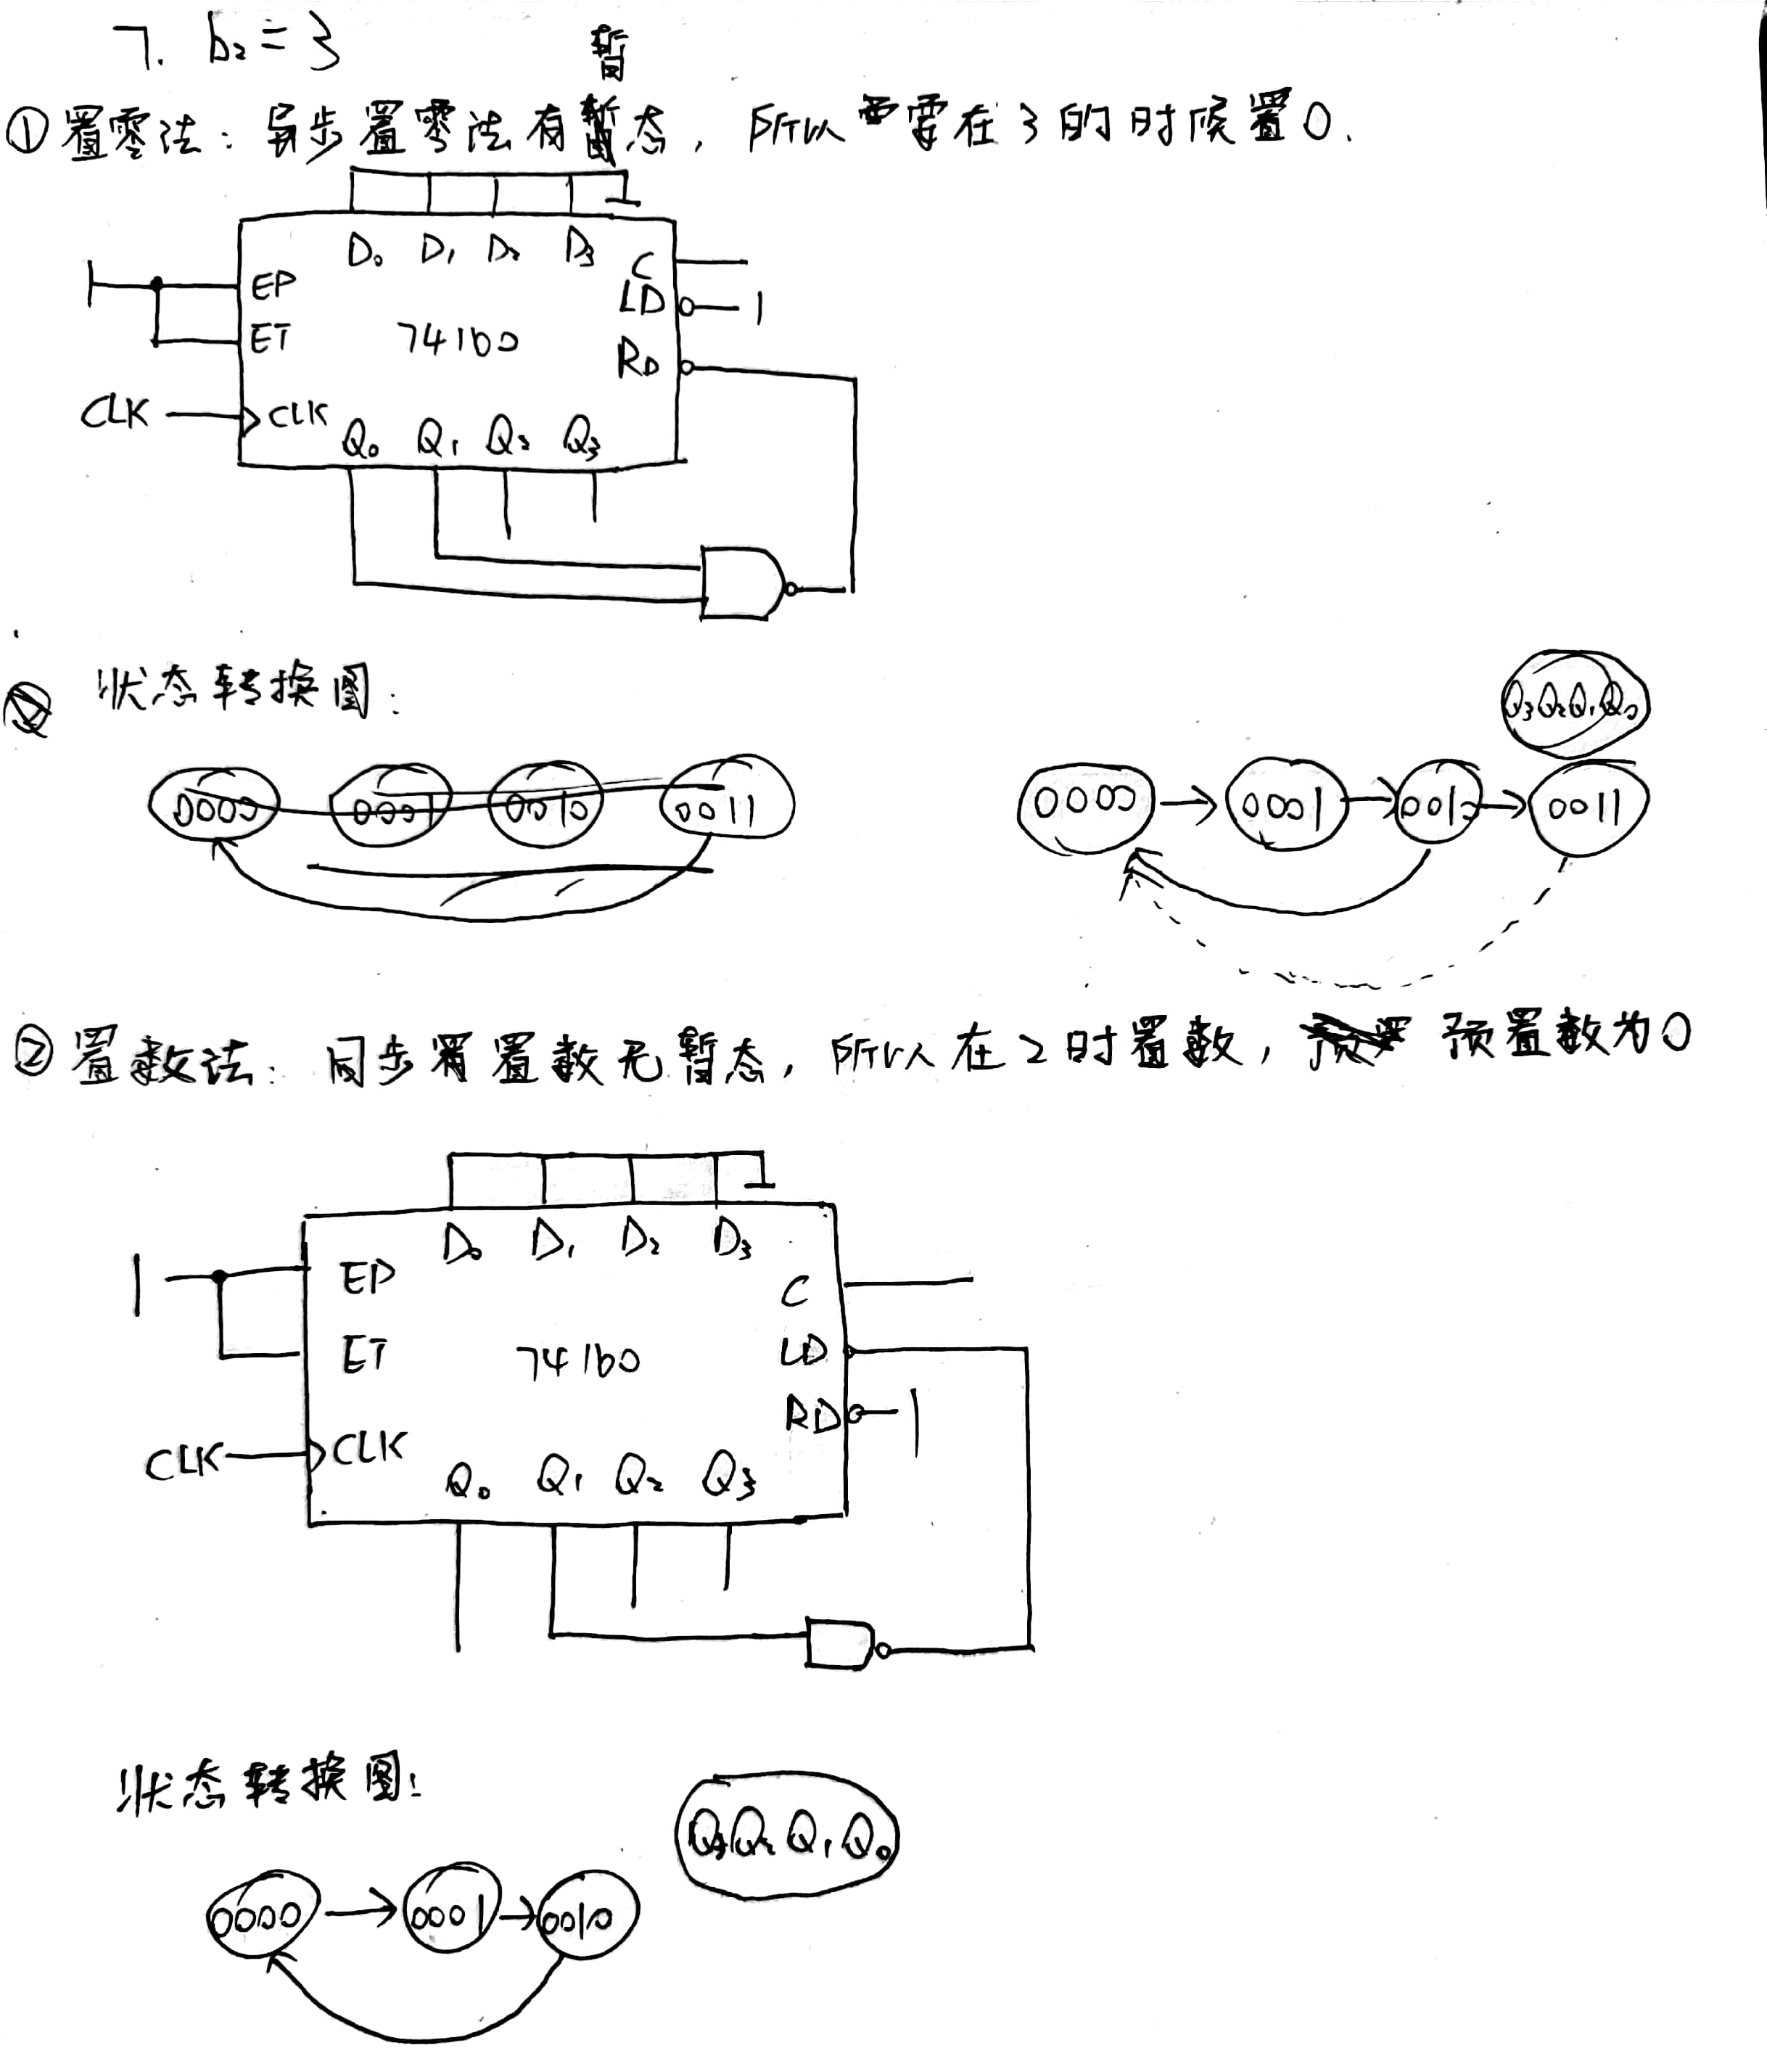 7. b₂=3
暂
①置零法：异步置零法有暂态，所以需在3的时候置0.
D₀ D₁ D₂ D₃
C
EP
LD 1
ET 74160
RD
CLK CLK
Q₀ Q₁ Q₂ Q₃
状态转换图：
Q₃Q₂Q₁Q₀
0000 0001 0010 0011
0000 0001 0010 0011
②置数法：同步置数无暂态，所以在2时置数，预置数为0
D₀ D₁ D₂ D₃
1 EP
C
ET 74160 LD
RD 1
CLK CLK
Q₀ Q₁ Q₂ Q₃
状态转换图：
Q₃Q₂Q₁Q₀
0000 0001 0010